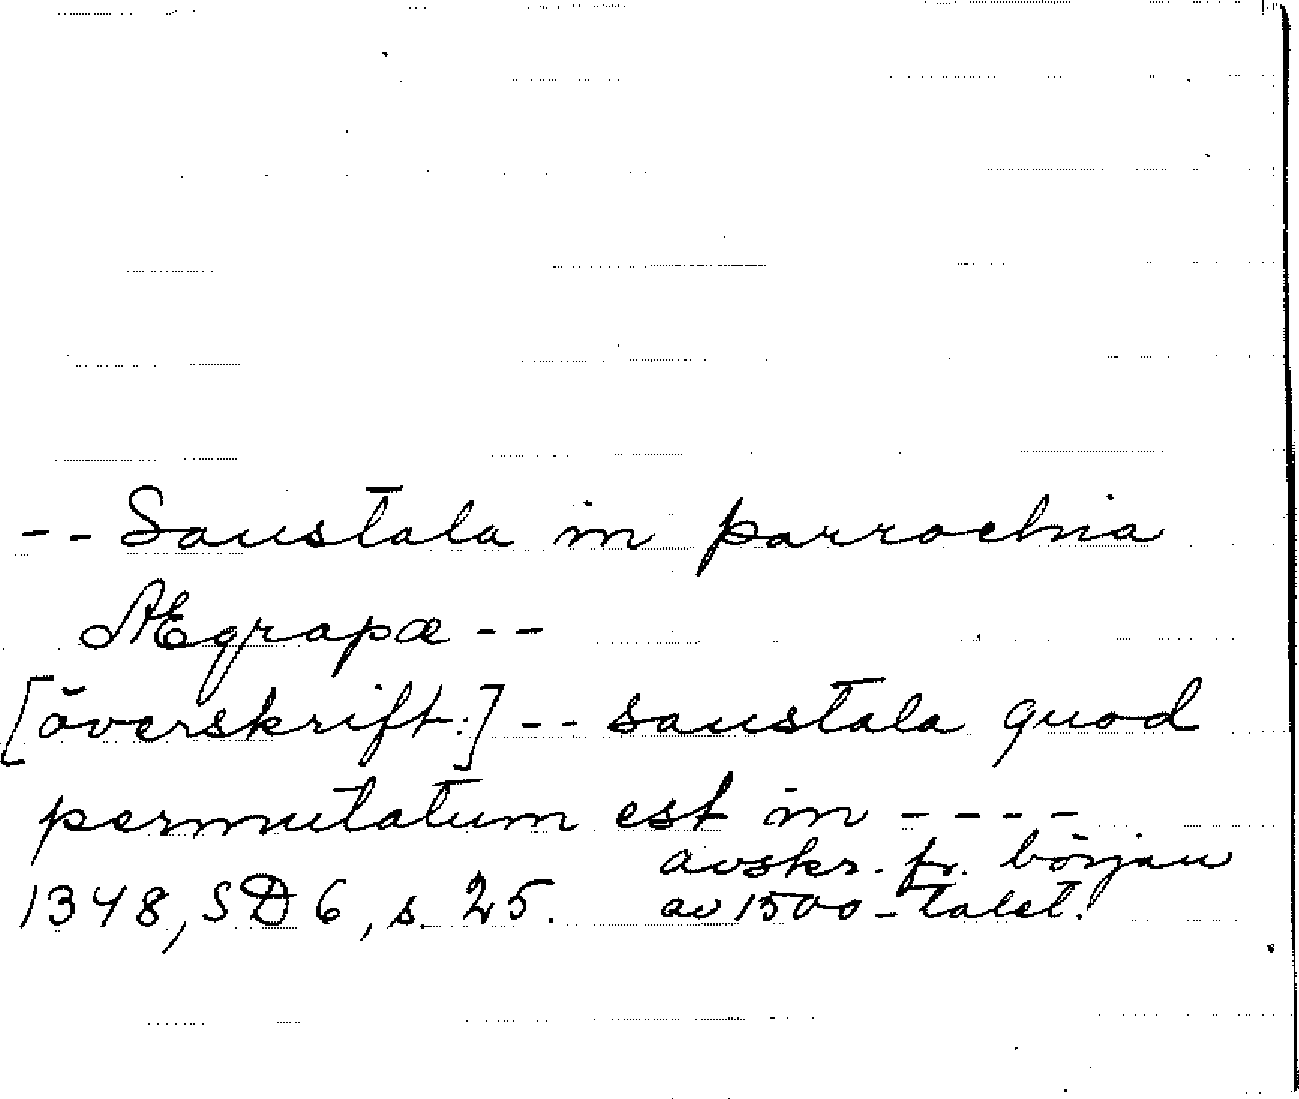 -- Saustala in parrochia
Ægrapæ --
[överskrift:] -- saustala quod
permutatum est in ----
avskr. fr. början
1348, SD 6, s. 25. av 1500-talet.